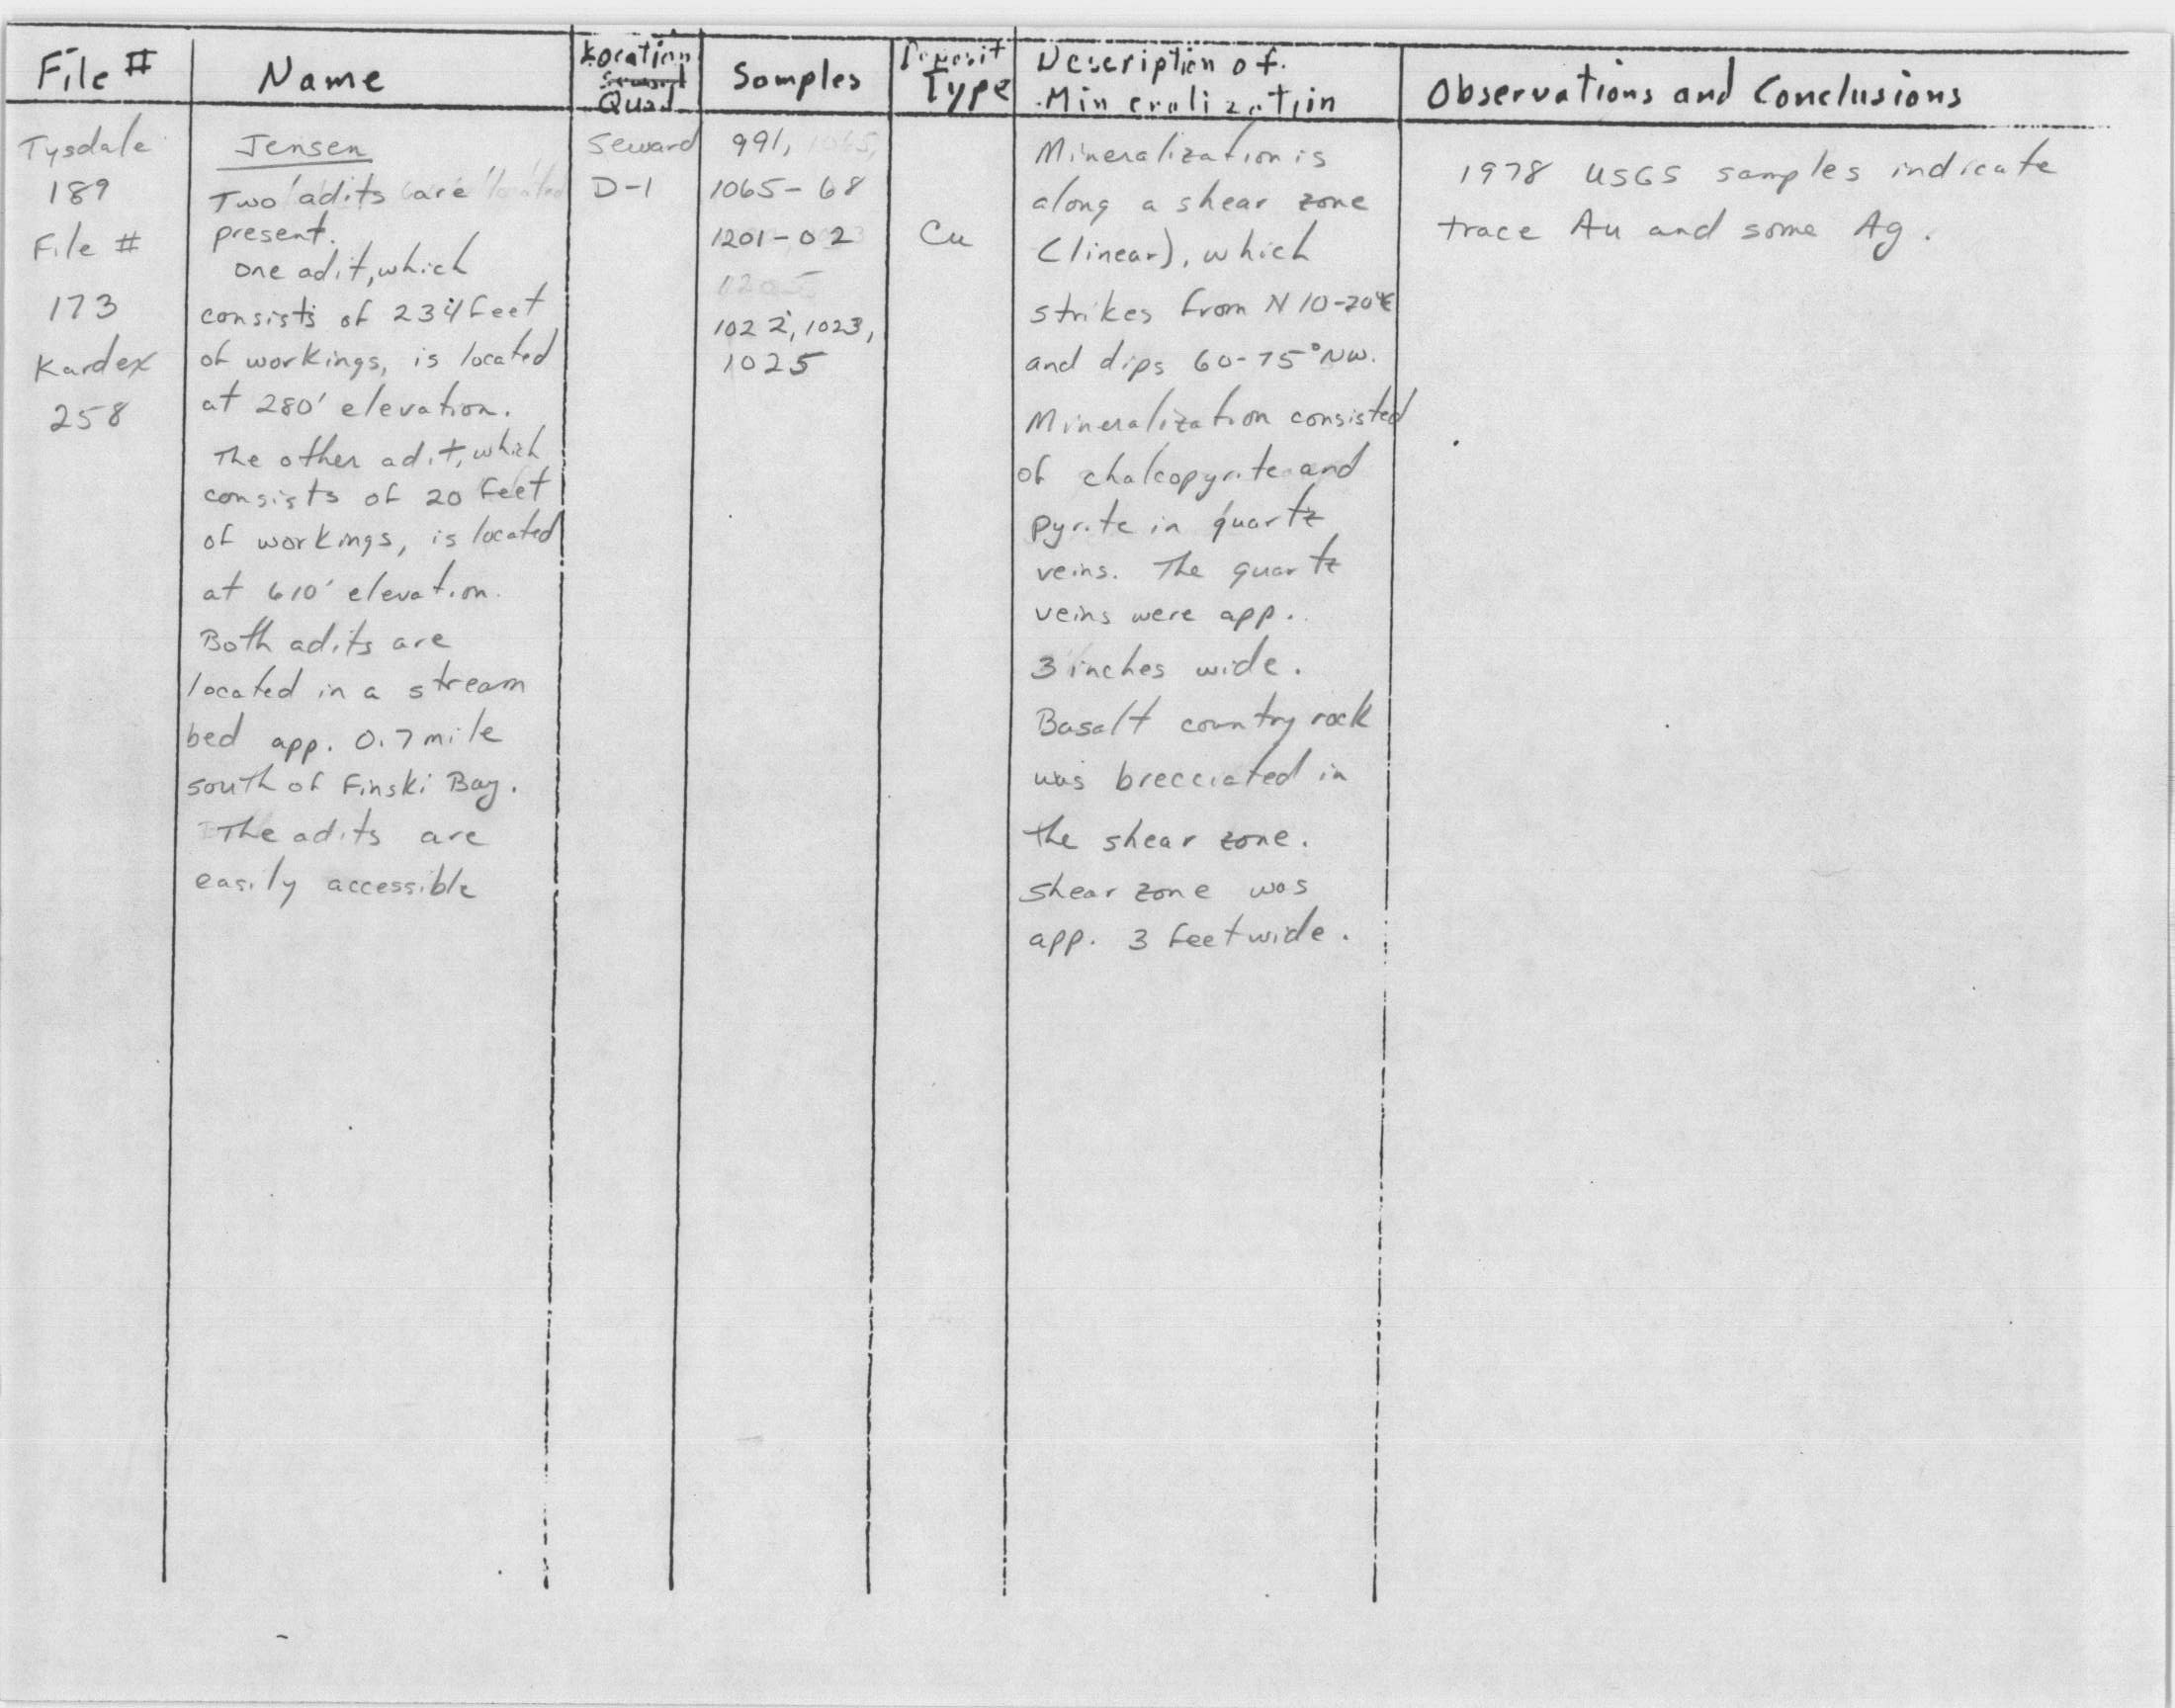 File #
Name
Location
Seward
Quad
Samples
Deposit
Type
Description of
Mineralization
Observations and Conclusions
Tysdale
189
File #
173
Kardex
258
Jensen
Two adits are
present.
One adit, which
consists of 234 feet
of workings, is located
at 280' elevation.
The other adit, which
consists of 20 feet
of workings, is located
at 610' elevation.
Both adits are
located in a stream
bed app. 0.7 mile
south of Finski Bay.
The adits are
easily accessible
Seward
D-1
991,
1065-68
1201-02
1022, 1023,
1025
Cu
Mineralization is
along a shear zone
(linear), which
strikes from N 10-20°E
and dips 60-75° NW.
Mineralization consisted
of chalcopyrite and
pyrite in quartz
veins. The quartz
veins were app.
3 inches wide.
Basalt country rock
was brecciated in
the shear zone.
Shear zone was
app. 3 feet wide.
1978 USGS samples indicate
trace Au and some Ag.